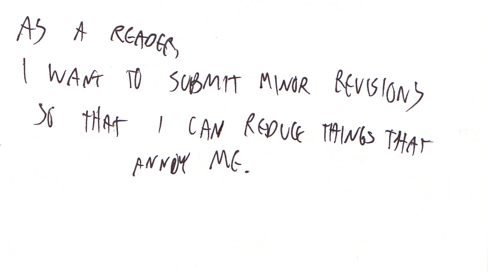 AS A READER,
I WANT TO SUBMIT MINOR REVISIONS
SO THAT I CAN REDUCE THINGS THAT
ANNOY ME.